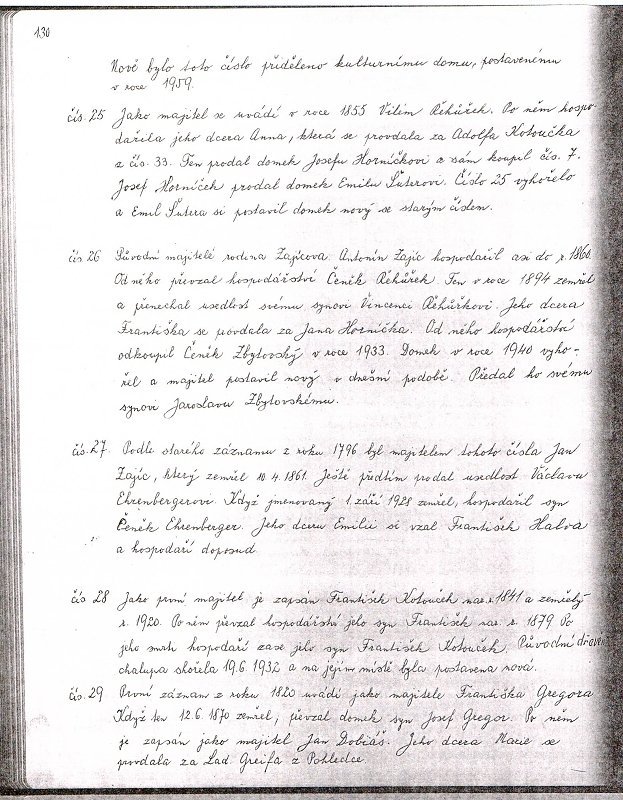 130
Nově bylo toto číslo přiděleno kulturnímu domu, postavenému
v roce 1959.
čís. 25 Jako majitel se uvádí v roce 1855 Vilém Řehůřek. Po něm hospo-
dařila jeho dcera Anna, která se provdala za Adolfa Kotoučka
z čís. 33. Ten prodal domek Josefu Horníčkovi a sám koupil čís. 7.
Josef Horníček prodal domek Emilu Šuterovi. Číslo 25 vyhořelo
a Emil Šutera si postavil domek nový se starým číslem.
čís 26 Původní majitelé rodina Zajícova. Antonín Zajíc hospodařil asi do r. 1860.
Od něho převzal hospodářství Čeněk Řehůřek Ten v roce 1894 zemřel
a přenechal usedlost svému synovi Vincenci Řehůřkovi. Jeho dcera
Františka se provdala za Jana Horníčka. Od něho hospodářství
odkoupil Čeněk Zbytovský v roce 1933. Domek v roce 1940 vyho-
řel a majitel postavil nový v dnešní podobě. Předal ho svému
synovi Jaroslavu Zbytovskému.
čís. 27. Podle starého záznamu z roku 1796 byl majitelem tohoto čísla Jan
Zajíc, který zemřel 10. 4. 1861. Ještě předtím prodal usedlost Václavu
Ehrenbergerovi. Když jmenovaný 1. září 1928 zemřel, hospodařil syn
Čeněk Ehrenberger. Jeho dceru Emilii si vzal František Halva
a hospodaří doposud
čís 28 Jako první majitel je zapsán František Kotouček nar. r. 1841 a zemřelý
r. 1920. Po něm převzal hospodářství jeho syn František nar. r. 1879 Po
jeho smrti hospodaří zase jeho syn František Kotouček. Původní dřevěn
chalupa shořela 19. 6. 1932 a na jejím místě byla postavena nová.
čís. 29 První záznam z roku 1820 uvádí jako majitele Františka Gregora
Když ten 12. 6. 1870 zemřel, převzal domek syn Josef Gregor. Po něm
je zapsán jako majitel Jan Dobiáš. Jeho dcera Marie se
provdala za Lad Greifa z Pohledce.